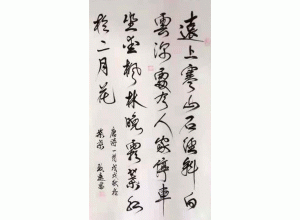 遠上寒山石徑斜白
雲深處有人家停車
坐愛楓林晚霜葉紅
於二月花
唐詩一首戊戌秋月